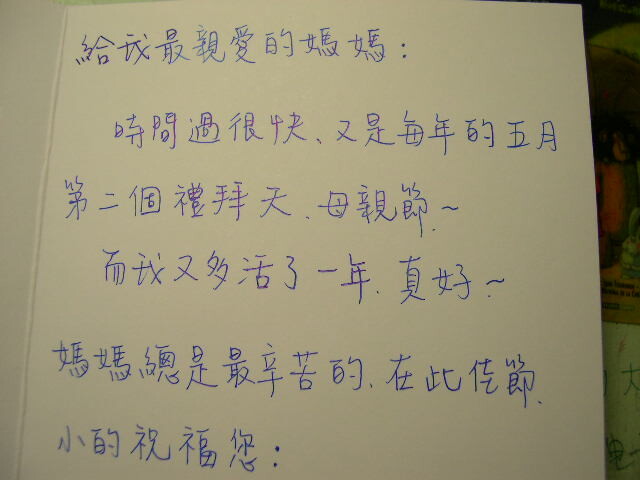 給我最親愛的媽媽：
時間過很快、又是每年的五月
第二個禮拜天、母親節、~
而我又多活了一年、真好~
媽媽總是最辛苦的、在此佳節、
小的祝福您：